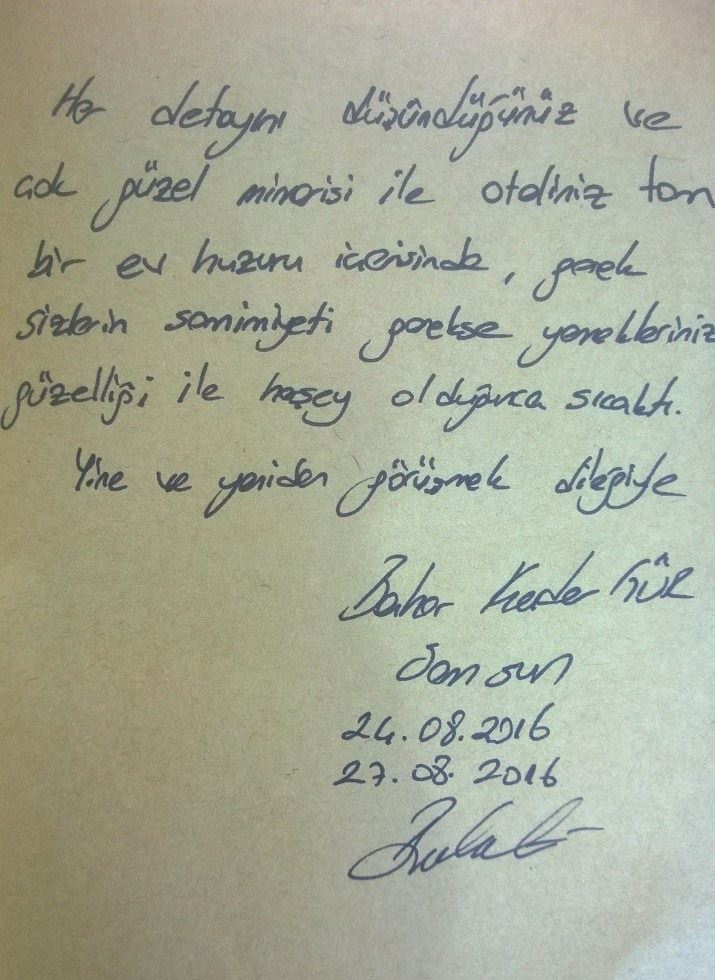 Her detayını düşündüğünüz ve
çok güzel mimarisi ile oteliniz tam
bir ev huzuru içerisinde, gerek
sizlerin samimiyeti gerekse yemekleriniz
güzelliği ile herşey oldukça sıcaktı.
Yine ve yeniden görüşmek dileğiyle
Bahar GÜR
Samsun
24.08.2016
27.08.2016